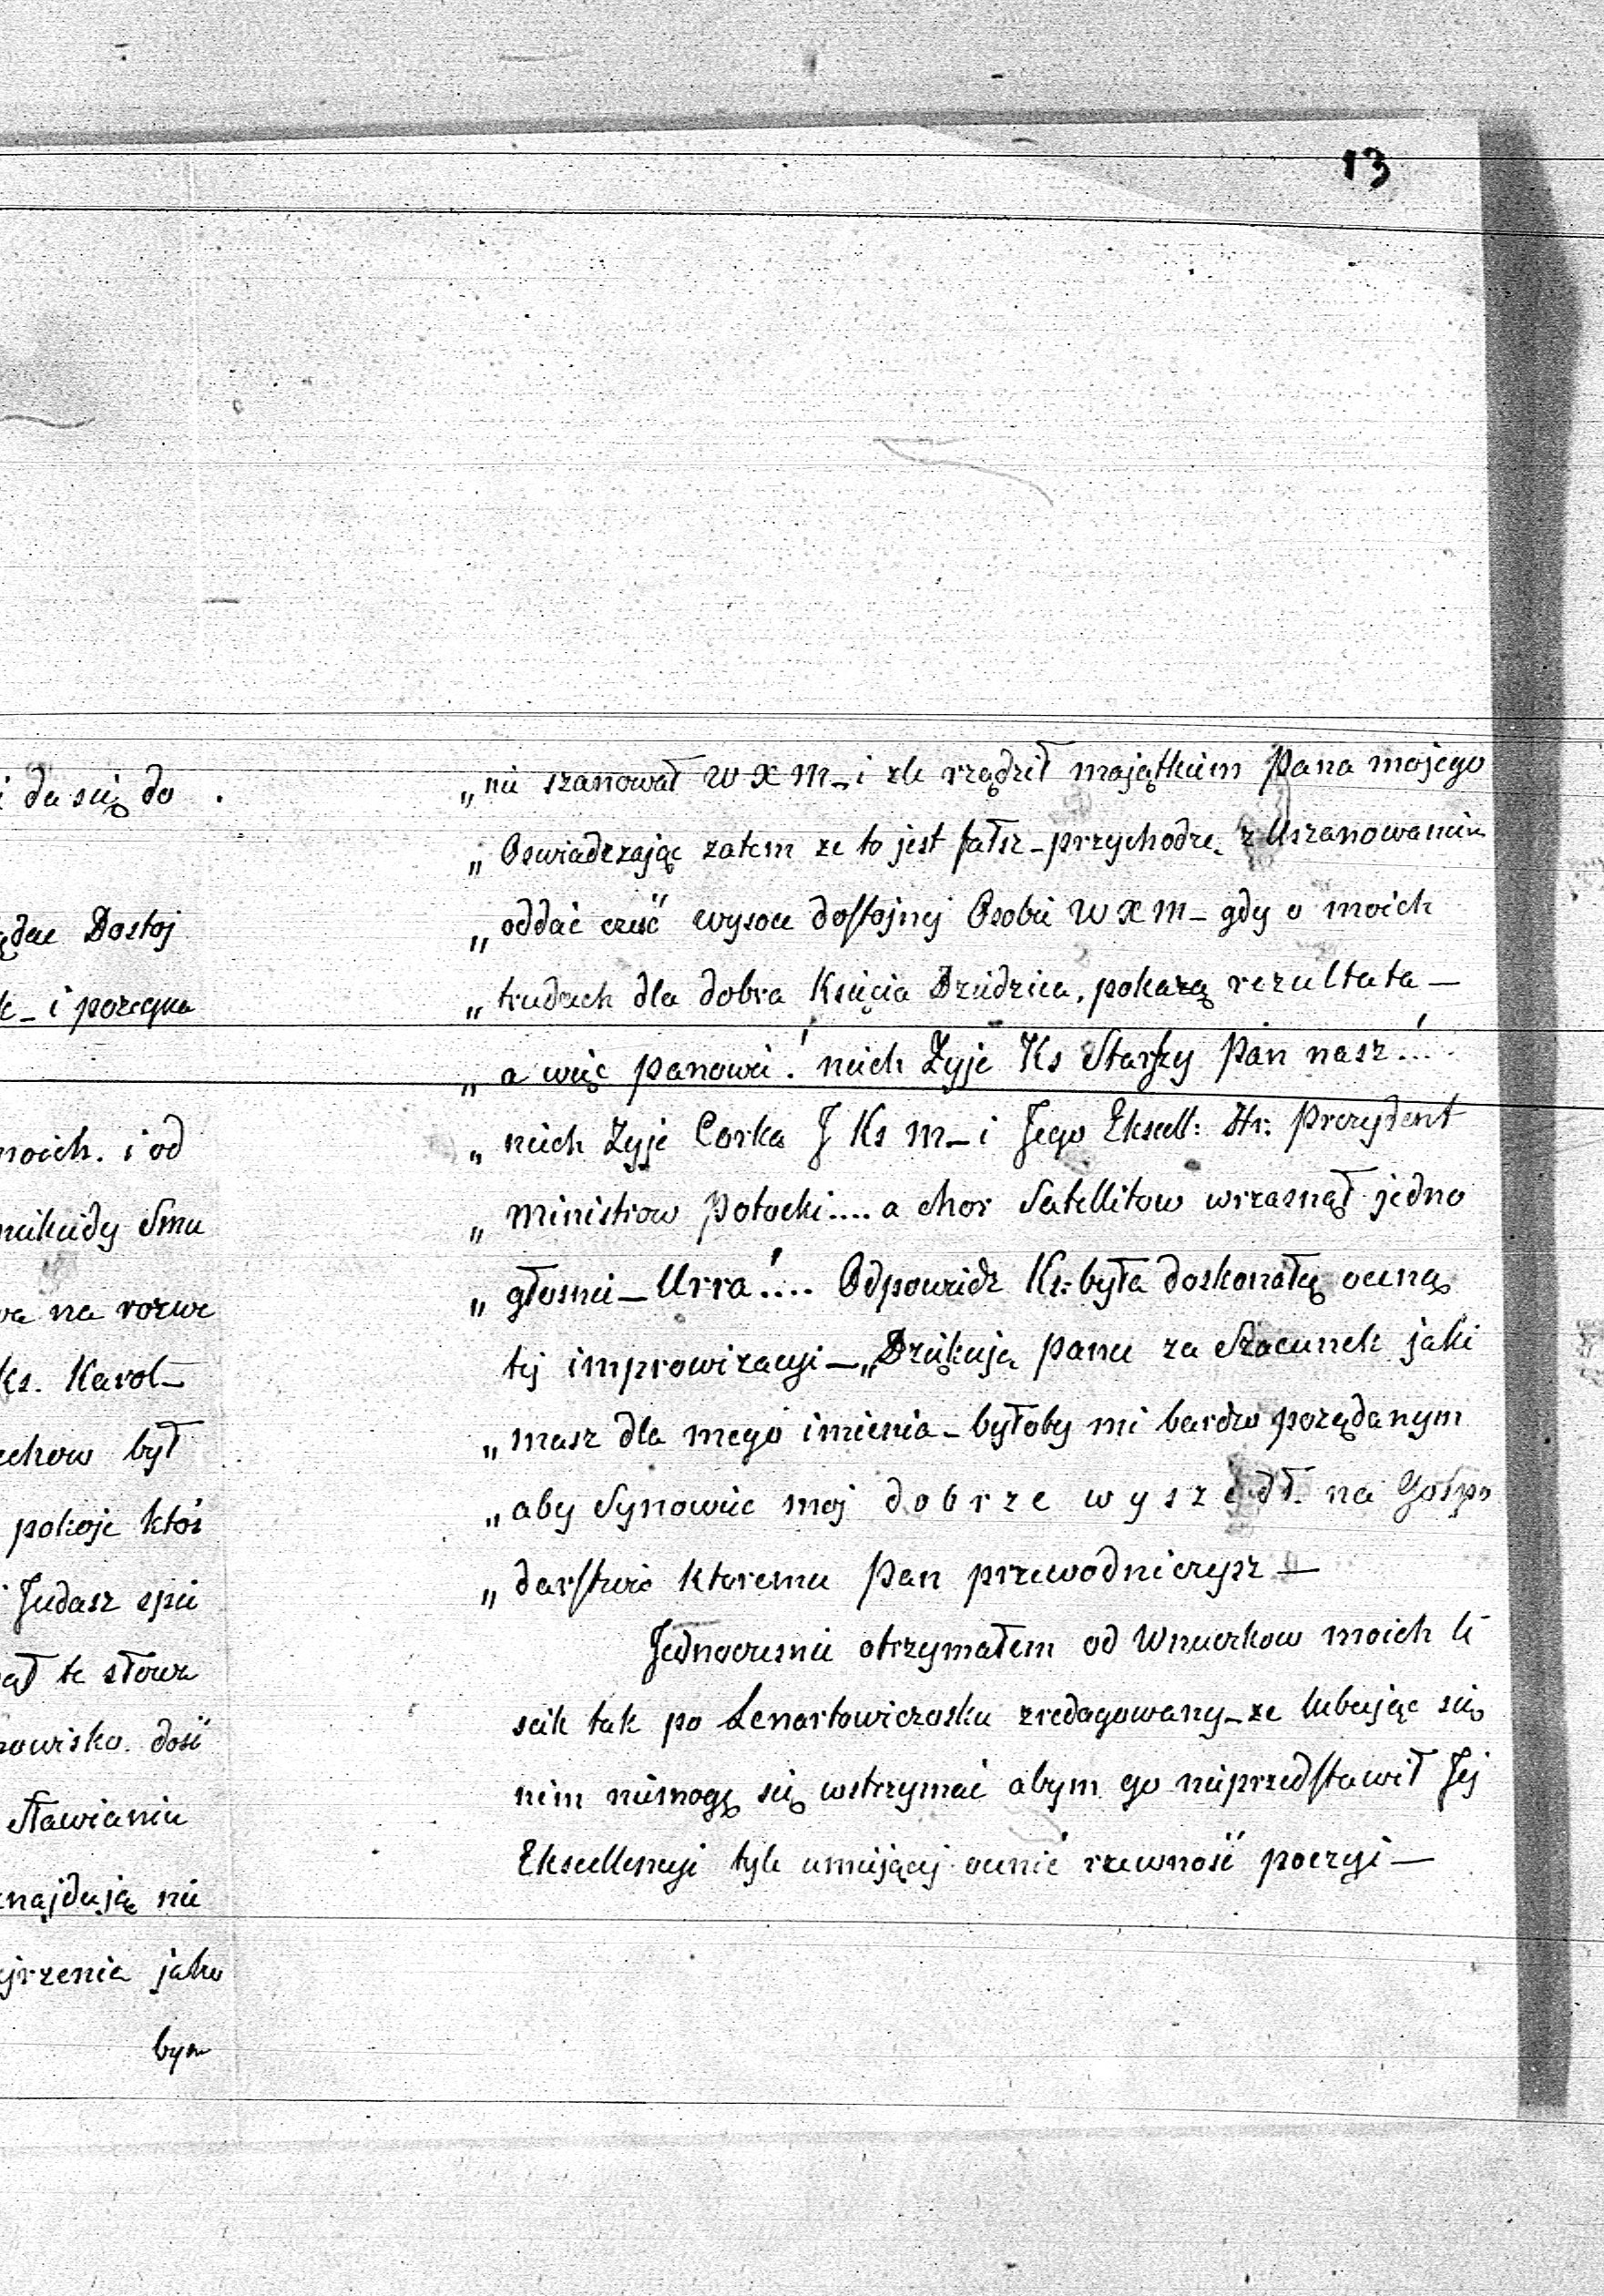 13
i da się do .
ądae Dostoj
k_ i pozegna
moich. i od
niekiedy Smu
va na rozwe
Ks. Karol_
echow był
pokoje ktoś
i Judasz spie
ął te słowa
nowisko. dość
stawianiu
znajdują nie
ejrzenia jako
bym
„ nie szanował W X M_ i zle rządził majątkiem Pana mojego
„ Oswiadczając zatem ze to jest fałsz_ przychodzę z Uszanowaniem
„ oddać cześć wysoce dostojnej Osobie W X M_ gdy o moich
„ trudach dla dobra Księcia Dziedzica, pokażą rezultata_
„ a więc panowie! niech Zyje Ks Starszy Pan nasz!...
„ niech Zyje Corka J Ks M_ i Jego Eksell: Hr: Prezydent
„ Ministrow Potocki.... a chor Satellitow wrzasnął jedno
„ głosnie_ Urra!.... Odpowiedz Ks: była doskonałą oceną
tej improwizacyi_ „Dziękuję Panu za Szacunek jaki
„ masz dla mego imienia_ byłoby mi bardzo pożądanym
„ aby Synowiec moj dobrze wyszedł na Gospo
„ darstwie ktoremu Pan przewodniczysz_
Jednoczesnie otrzymałem od Wnuczkow moich li
scik tak po Lenartowiczosku zredagowany_ ze lubując się
nim niemogę się wstrzymać abym go nieprzedstawił Jej
Eksellencyi tyle umiejącej ocenić rzewność poezyi_